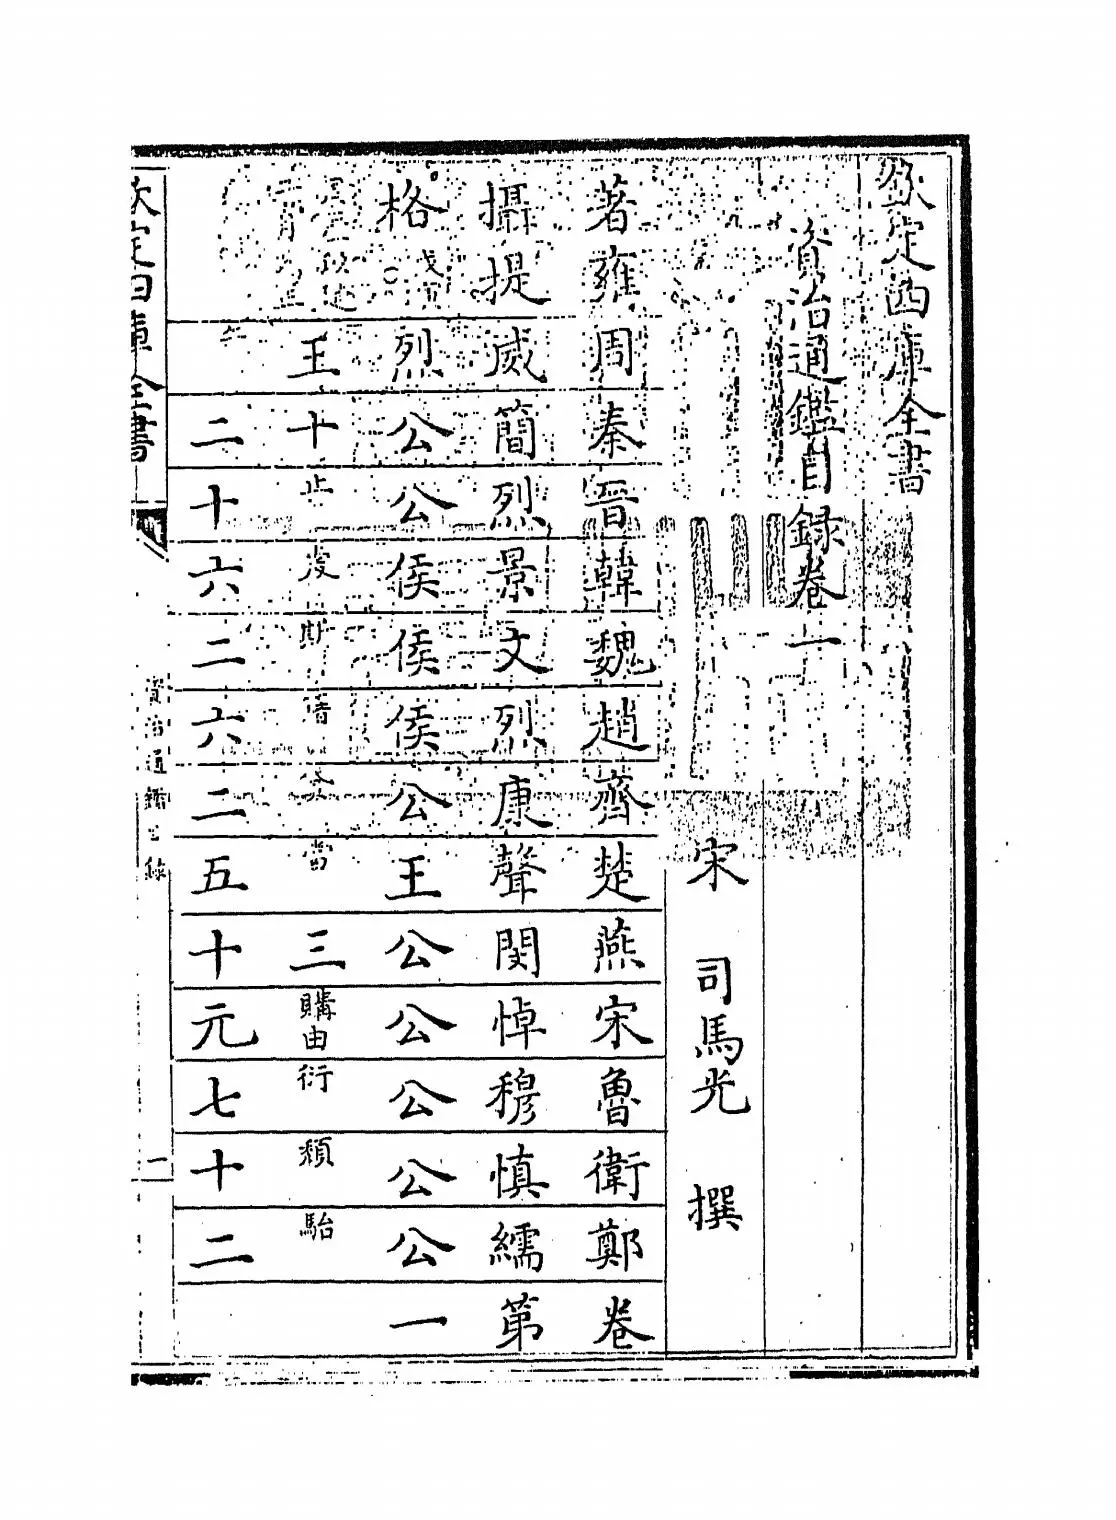 欽定四庫全書
資治通鑑目録卷一
宋 司馬光 撰
著雍周秦晉韓魏趙齊楚燕宋魯衛鄭卷
攝提威簡烈景文烈康聲閔悼穆慎繻第
格烈公公侯侯侯公王公公公公公一
王十止當三購由衍頹駘
二十六二六二五十元七十二
欽定四庫全書
資治通鑑目録